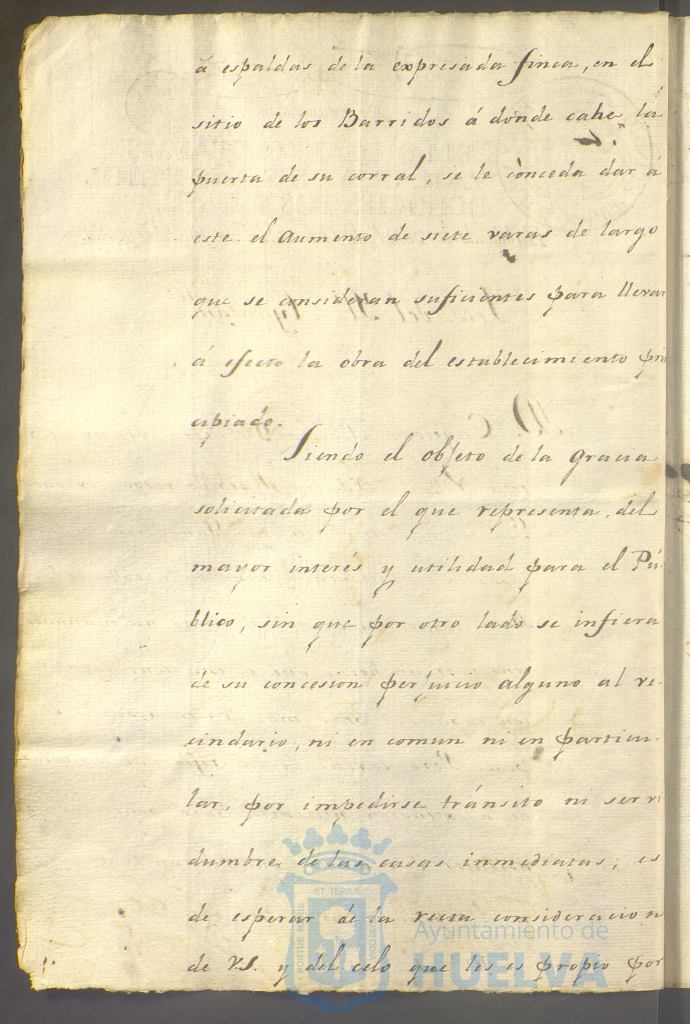 á espaldas de la expresada finca, en el
sitio de los Barridos á donde cahe la
puerta de su corral, se le conceda dar á
este el aumento de siete varas de largo
que se consideran suficientes para llevar
á efecto la obra del establecimiento prin
cipiado.
Siendo el objeto de la gracia
solicitada por el que representa, del
mayor interés y utilidad para el Pú-
blico, sin que por otro lado se infiera
de su concesion perjuicio alguno al ve-
cindario, ni en comun ni en particu-
lar, por impedirse tránsito ni servi
dumbre de las casas inmediatas; es
de esperar de la recta consideracion
de V.S. y del celo que les es propio por
Ayuntamiento de
HUELVA